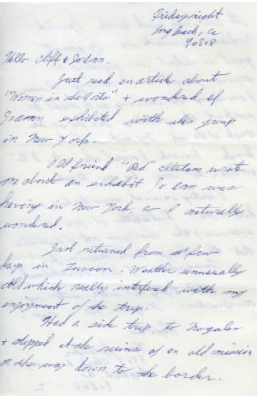 Friday night
Long Beach, Ca
90808
Hello Cliff & Joann.
Just read an article about
"Women in the Arts" & wondered if
Joann exhibited with the group
in New York.
Old friend "Red" wrote
me about an exhibit Jo Ann was
having in New York, & I naturally
wondered.
Just returned from a few
days in Tucson. Weather unusually
cold which really interfered with my
enjoyment of the trip.
Had a side trip to Nogales
& stopped at the ruins of an old mission
on the way down to the border.